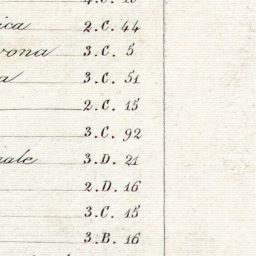 2.C. 44
3.C. 5
3.C. 51
2.C. 15
3.C. 92
3.D. 21
2.D. 16
3.C. 15
3.B. 16